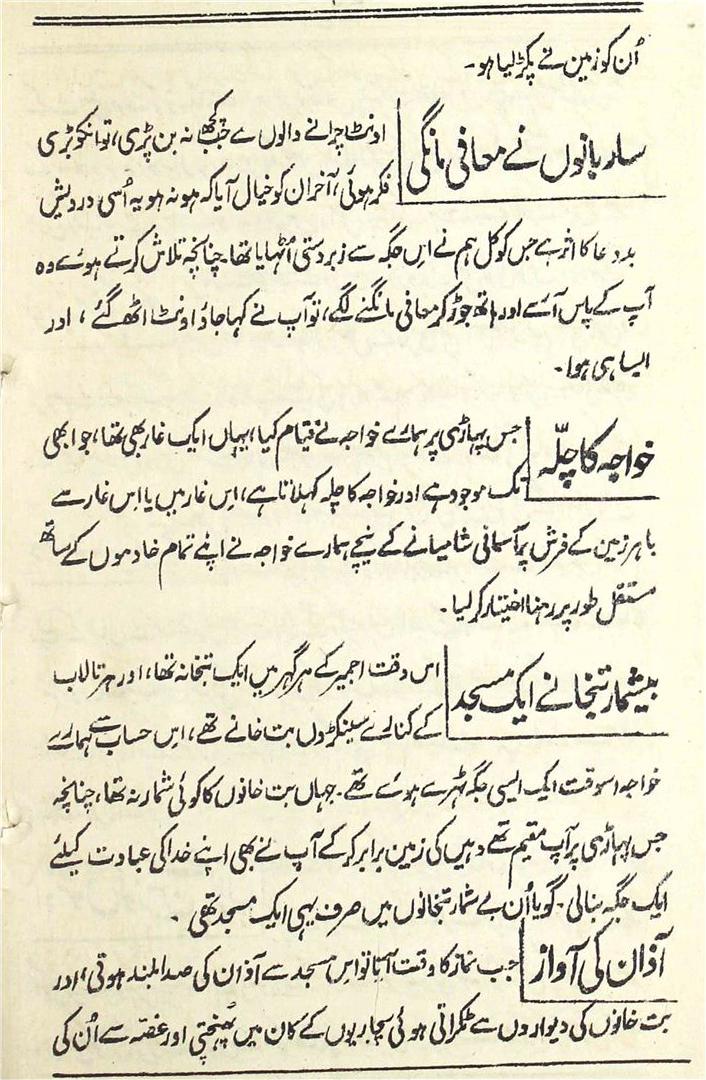 اُن کو زمین نے پکڑ لیا ہو۔
ساربانوں نے معافی مانگی
اونٹ چرانے والوں سے جب کچھ نہ بن پڑی، تو انکو بڑی
فکر ہوئی، آخر ان کو خیال آیا کہ ہو نہ ہو یہ اُسی درویش
بددعا کا اثر ہے جس کو کل ہم نے اس جگہ سے زبردستی اُٹھایا تھا۔ چنانچہ تلاش کرتے ہوئے وہ
آپ کے پاس آئے اور ہاتھ جوڑ کر معافی مانگنے لگے، تو آپ نے کہا جاؤ اونٹ اٹھ گئے، اور
ایسا ہی ہوا۔
خواجہ کا چلّہ
جس پہاڑی پر ہمارے خواجہ نے قیام کیا، یہاں ایک غار بھی تھا، جو ابھی
تک موجود ہے اور خواجہ کا چلہ کہلاتا ہے، اس غار میں یا اس غار سے
باہر زمین کے فرش پر آسمانی شامیانے کے نیچے ہمارے خواجہ نے اپنے تمام خادموں کے ساتھ
مستقل طور پر رہنا اختیار کر لیا۔
بیشمار بتخانے ایک مسجد
اس وقت اجمیر کے ہر گہر میں ایک بتخانہ تھا، اور ہر تالاب
کے کنارے سینکڑوں بت خانے تھے، اس حساب سے ہمارے
خواجہ اسوقت ایک ایسی جگہ ٹہرے ہوئے تھے۔ جہاں بت خانوں کا کوئی شمار نہ تھا، چنانچہ
جس پہاڑی پر آپ مقیم تھے وہیں کی زمین برابر کر کے آپ نے بھی اپنے خدا کی عبادت کیلئے
ایک جگہ بنالی۔ گویا اُن بے شمار بتخانوں میں صرف یہی ایک مسجد تھی۔
آذان کی آواز
جب نماز کا وقت آتا تو اس مسجد سے آذان کی صدا بلند ہوتی، اور
بت خانوں کی دیواروں سے ٹکراتی ہوئی پجاریوں کے کان میں پُہنچتی اور غصّہ سے اُن کی